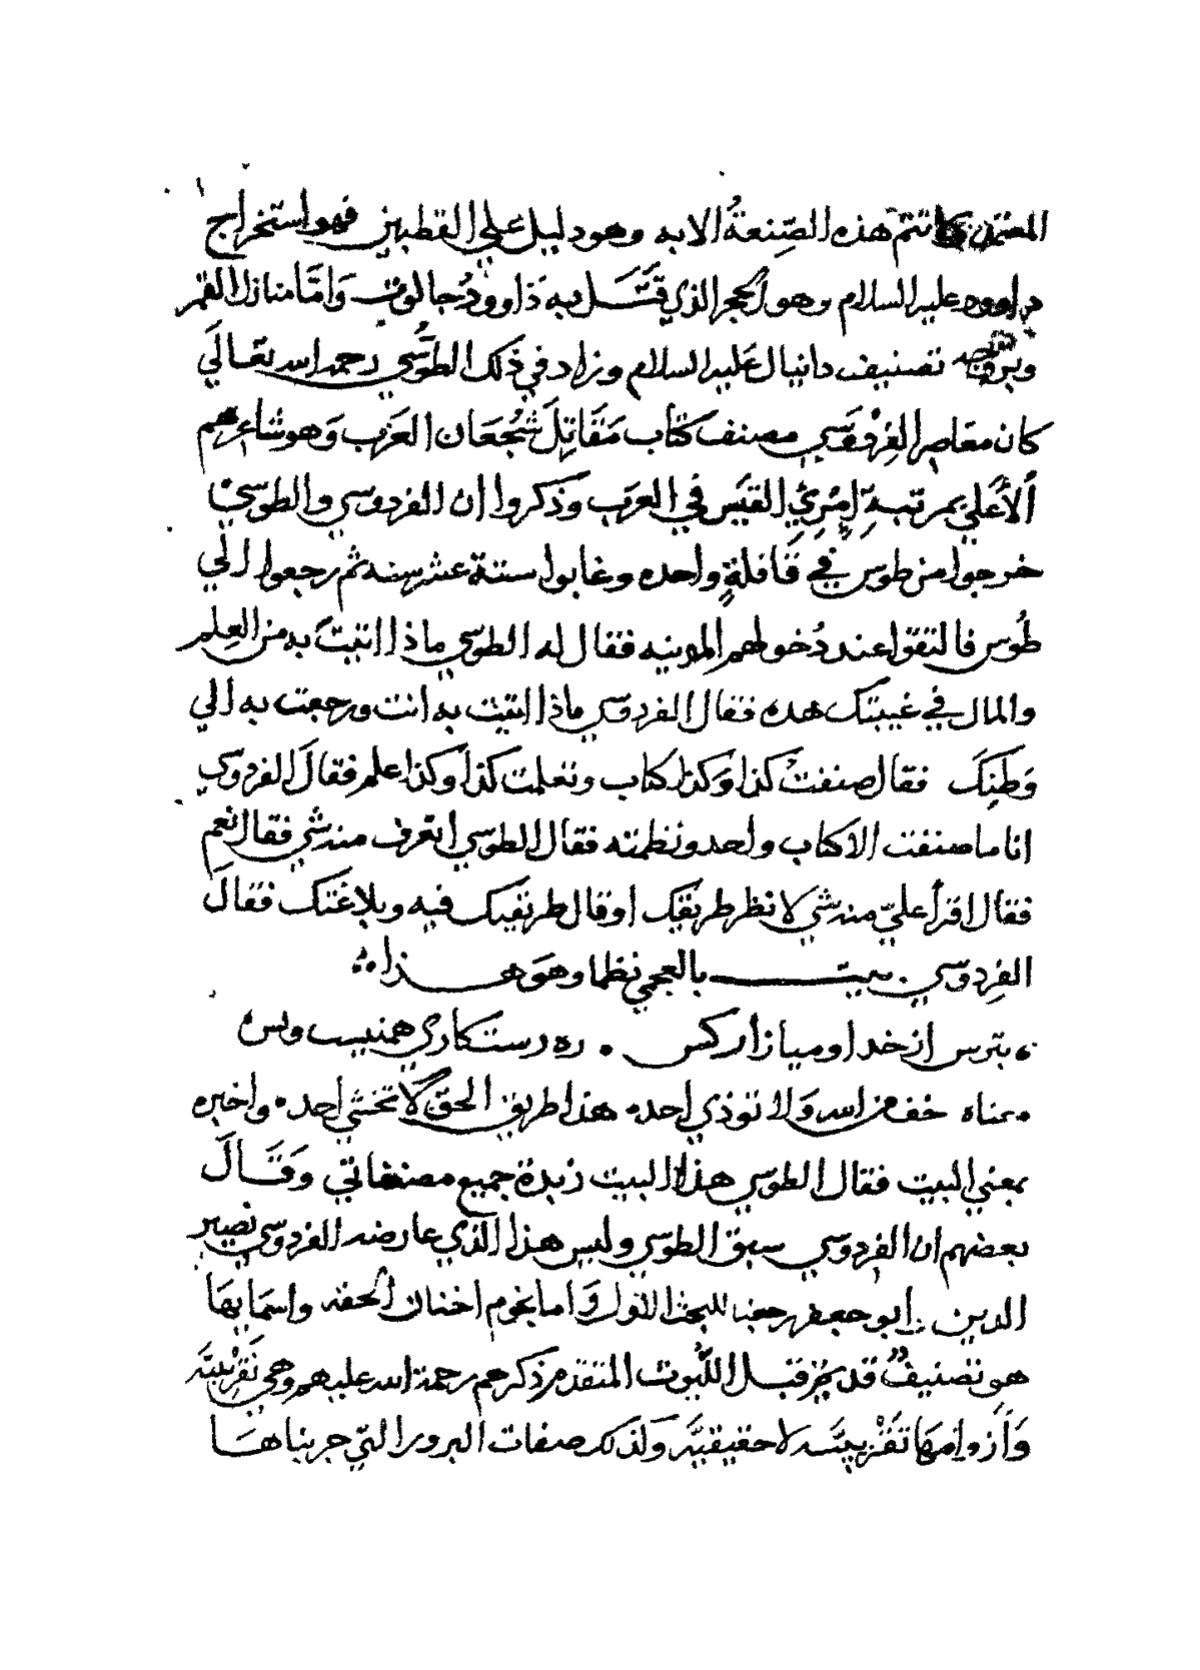 تتم هذه الصِّنعةُ الا به وهو دليل علي القطبين فهو استخراج
داوود عليه السلام وهو الحجر الذي قَتَّل به دَاوودُ جالوت وَامَّا منازل القمر
تصنيف دانيال عَليه السلام وزاد في ذَلك الطُوسُي رحمه الله تعَالَي
كان معَاصر الفِردوَسي مصنف كتاب مَقَاتِلَ شُجعَان العَرَب وَهو شاعرهم
الأعَلي بمرتبةِ اِمْرِئِ القيَس في العرَب وَذكروا ان الفردوسي والطوسي
خرجوا من طوس في قَافلةٍ واحده وغابوا ستة عشر سنه ثم رجعوا الَي
طُوس فالتقوا عند دُخولهم المدينه فقال له الطوسي ماذا اتيتَ به من العِلم
والمال في غيبتك هده فقال الفردوسي ماذا اتيت به انت ورجعت به الي
وَطَنِكَ فقال صنفتْ كذا وَكذا كتاب وتعلمت كذا وكذا علم فقالَ الفردوسي
انا ما صنفت الا كتاب واحد ونظمته فقال الطوسي اتعرف منه شي فقال نعم
فقال اقرأ عليّ منه شي لانظر طريقك او قال طريقك فيه وبلاغتك فقالَ
الفِردوسي . بيت بالعجمي نظما وهَو هذا
بترس از خدا و ميازار كس . ره رستكاري همنيست وبس
معناه خف من الله وَلا توذي احد هذا طريق الحق لا تخشي احد واخبره
بمعني البيت فقال الطوسي هذا البيت زبدة جميع مصنفاتي وقَالَ
بعضهم ان الفردوسي سبق الطوسي وليس هذا الذي عارضه الفردوسي نصير
الدين ابو جعفر رجعنا للبحث الاول وَاما نجوم اخنان الحقه واسمايهَا
هو تصنيف قد بمز قبل اللُّيوث المتقدم ذكرهم رحمة الله عليهم وهي تَقرْيبيَّه
وَأزوامهَا تَقْريبيَّه لا حقيقيَّه وَلذلك صفات البرور التي جربناهَا